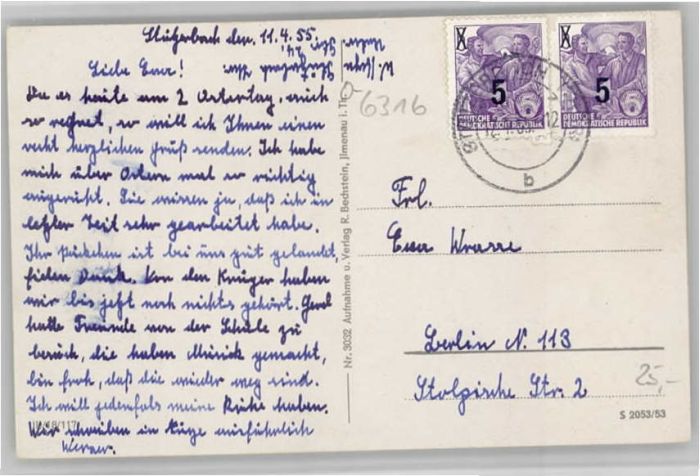 Stützerbach den. 11.4.55.
Liebe Eva!
Da es heute am 2 Ostertag, auch
so regnet, so will ich Ihnen einen
recht herzlichen Gruß senden. Ich habe
mich über Ostern mal so richtig
ausgeruht. Sie wissen ja, daß ich in
letzter Zeit sehr gearbeitet habe.
Ihr Päckchen ist bei uns gut gelandet,
fielen Dank. Von den Krüger haben
wir bis jetzt noch nichts gehört. Gerd
hatte Freunde von der Schule zu
berück, die haben Musick gemacht,
bin froh, daß die wieder weg sind.
Ich will jedenfals meine Ruhe haben.
Wir schreiben in Kürze ausführlich
Werner.
6316
Nr. 3032 Aufnahme u. Verlag R. Bechstein, Jlmenau i. Th.
5
DEUTSCHE
DEMOKRATISCHE REPUBLIK
5
DEUTSCHE
DEMOKRATISCHE REPUBLIK
12
b
Frl.
Eva
Berlin N. 113
Stolpische Str. 2
25,-
S 2053/53